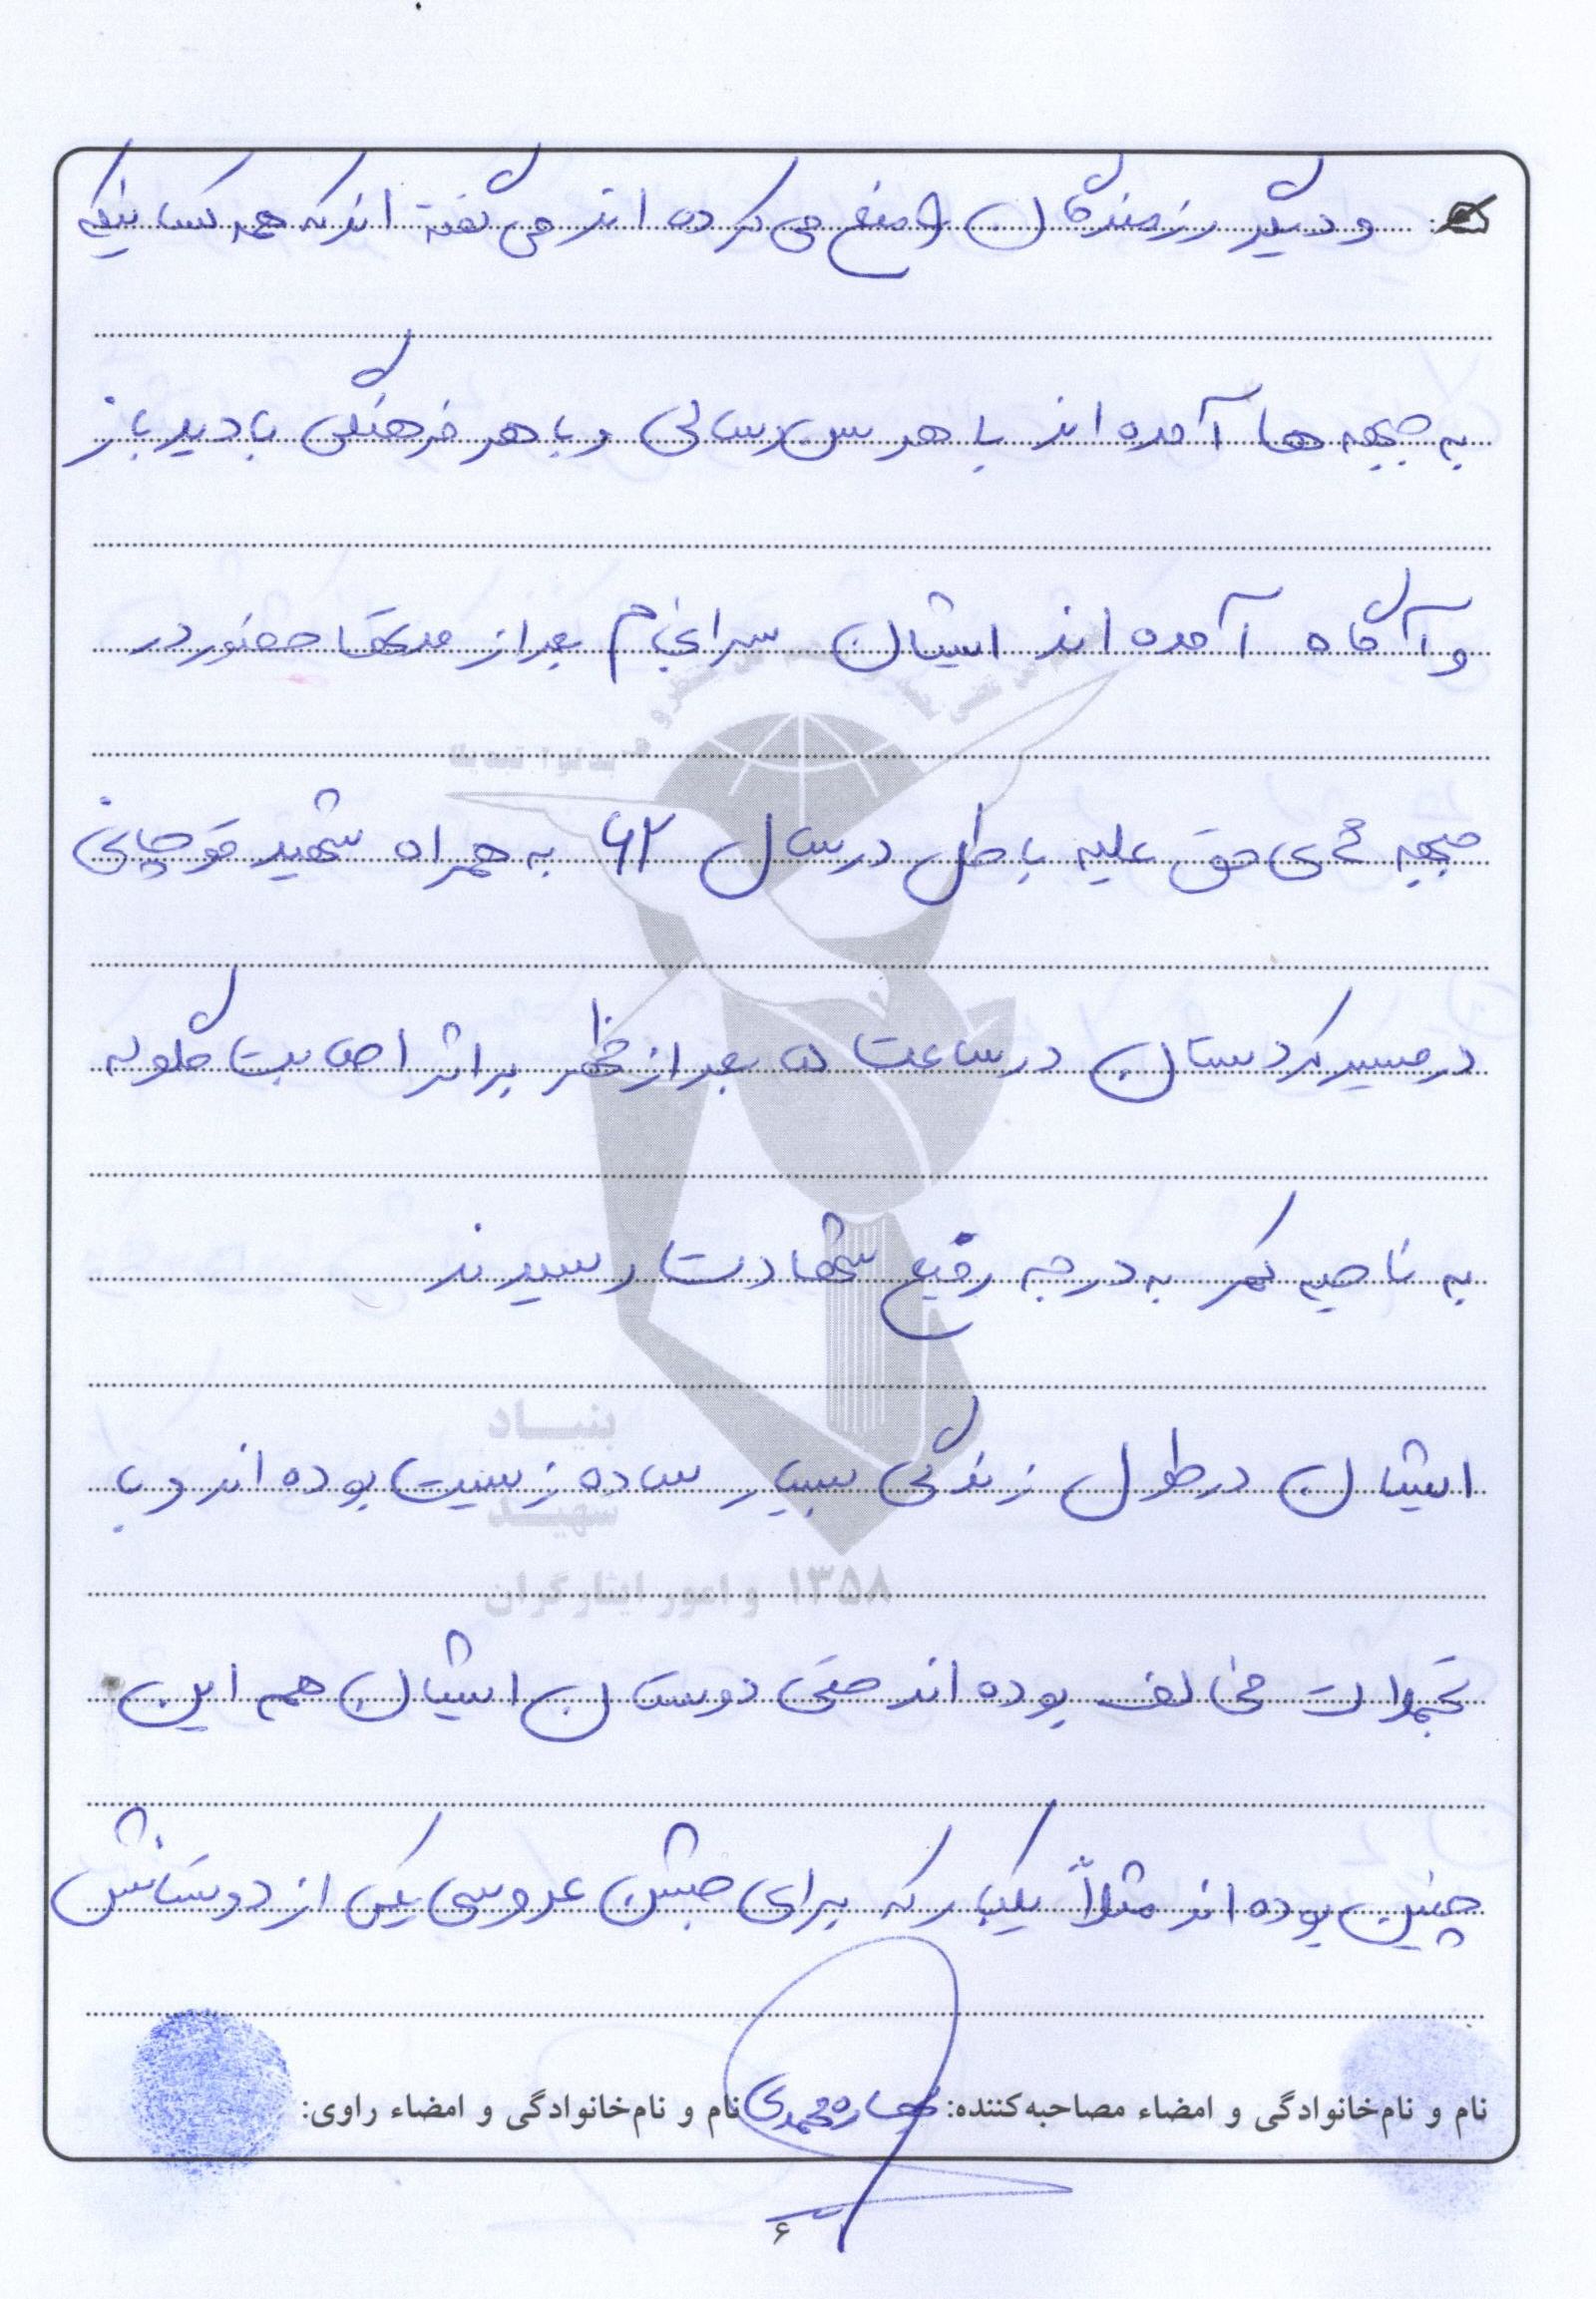 و دیگر رزمندگان را منع می کرده اند می گفته اند که همه کسانیکه
به جبهه ها آمده اند با هر سن و سالی و با هر فرهنگی با دید باز
و آگاه آمده اند ایشان سرانجام بعد از مدتها حضور در
جبهه های حق علیه باطل در سال ۶۲ به همراه شهید قوچانی
در مسیر کردستان در ساعت ۵ بعد از ظهر بر اثر اصابت گلوله
به ناحیه کمر به درجه رفیع شهادت رسیدند
بنیاد
ایشان در طول زندگی بسیار ساده زیست بوده اند و با
شهید
و امور ایثارگران ۱۳۵۸
تجملات مخالف بوده اند حتی دوستان ایشان هم این
چنین بوده اند مثلاً یکبار که برای جشن عروسی یکی از دوستانش
نام و نام‌خانوادگی و امضاء مصاحبه‌کننده: محمدی نام و نام‌خانوادگی و امضاء راوی:
۶